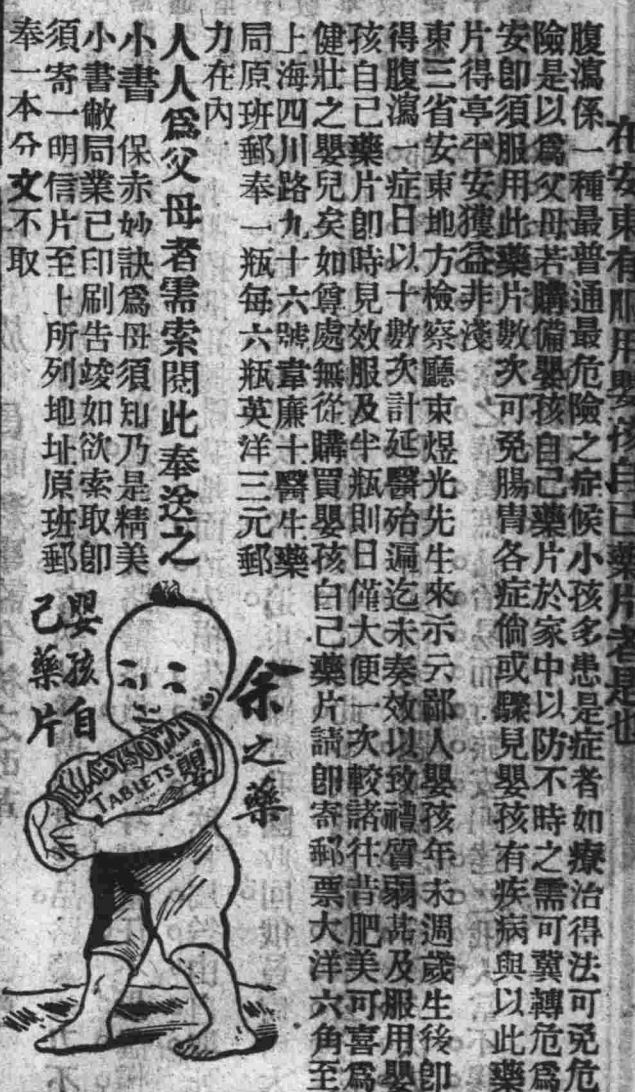 在安東有服用嬰孩自己藥片者是也
腹瀉係一種最普通最危險之症候小孩多患是症者如療治得法可免危
險是以爲父母若購備嬰孩自己藥片於家中以防不時之需可冀轉危爲
安卽須服用此藥片數次可免腸胃各症倘或驟見嬰孩有疾病與以此藥
片得享平安獲益非淺
東三省安東地方檢察廳束煜光先生來示云鄙人嬰孩年未週歲生後卽
得腹瀉一症日以十數次計延醫殆遍迄未奏效以致禮質弱甚及服用嬰
孩自己藥片卽時見效服及半瓶則日僅大便一次較諸往昔肥美可喜爲
健壯之嬰兒矣如尊處無從購買嬰孩自己藥片請卽寄郵票大洋六角至
上海四川路九十六號韋廉士醫生藥
局原班郵奉一瓶每六瓶英洋三元郵
力在內
人人爲父母者需索閱此奉送之
小書 保赤妙訣爲母須知乃是精美
小書敝局業已印刷告竣如欲索取卽
須寄一明信片至上所列地址原班郵
奉一本分文不取
余之藥
嬰孩自
己藥片
TABLETS
嬰